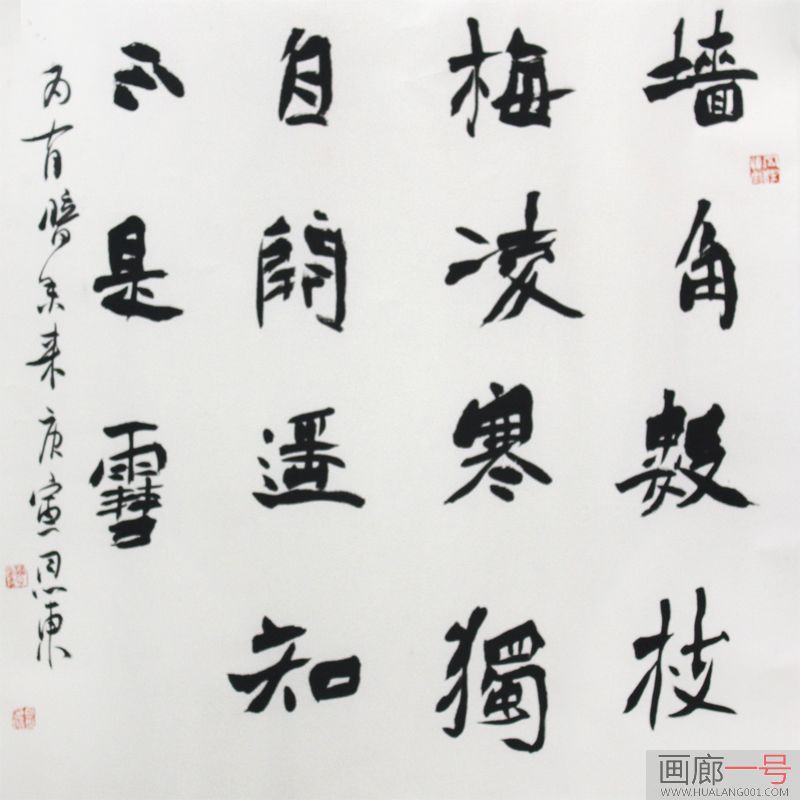 墙角數枝
梅凌寒獨
自開遥知
不是雪
为有暗香来庚寅恩東
画廊一号
WWW.HUALANG001.COM